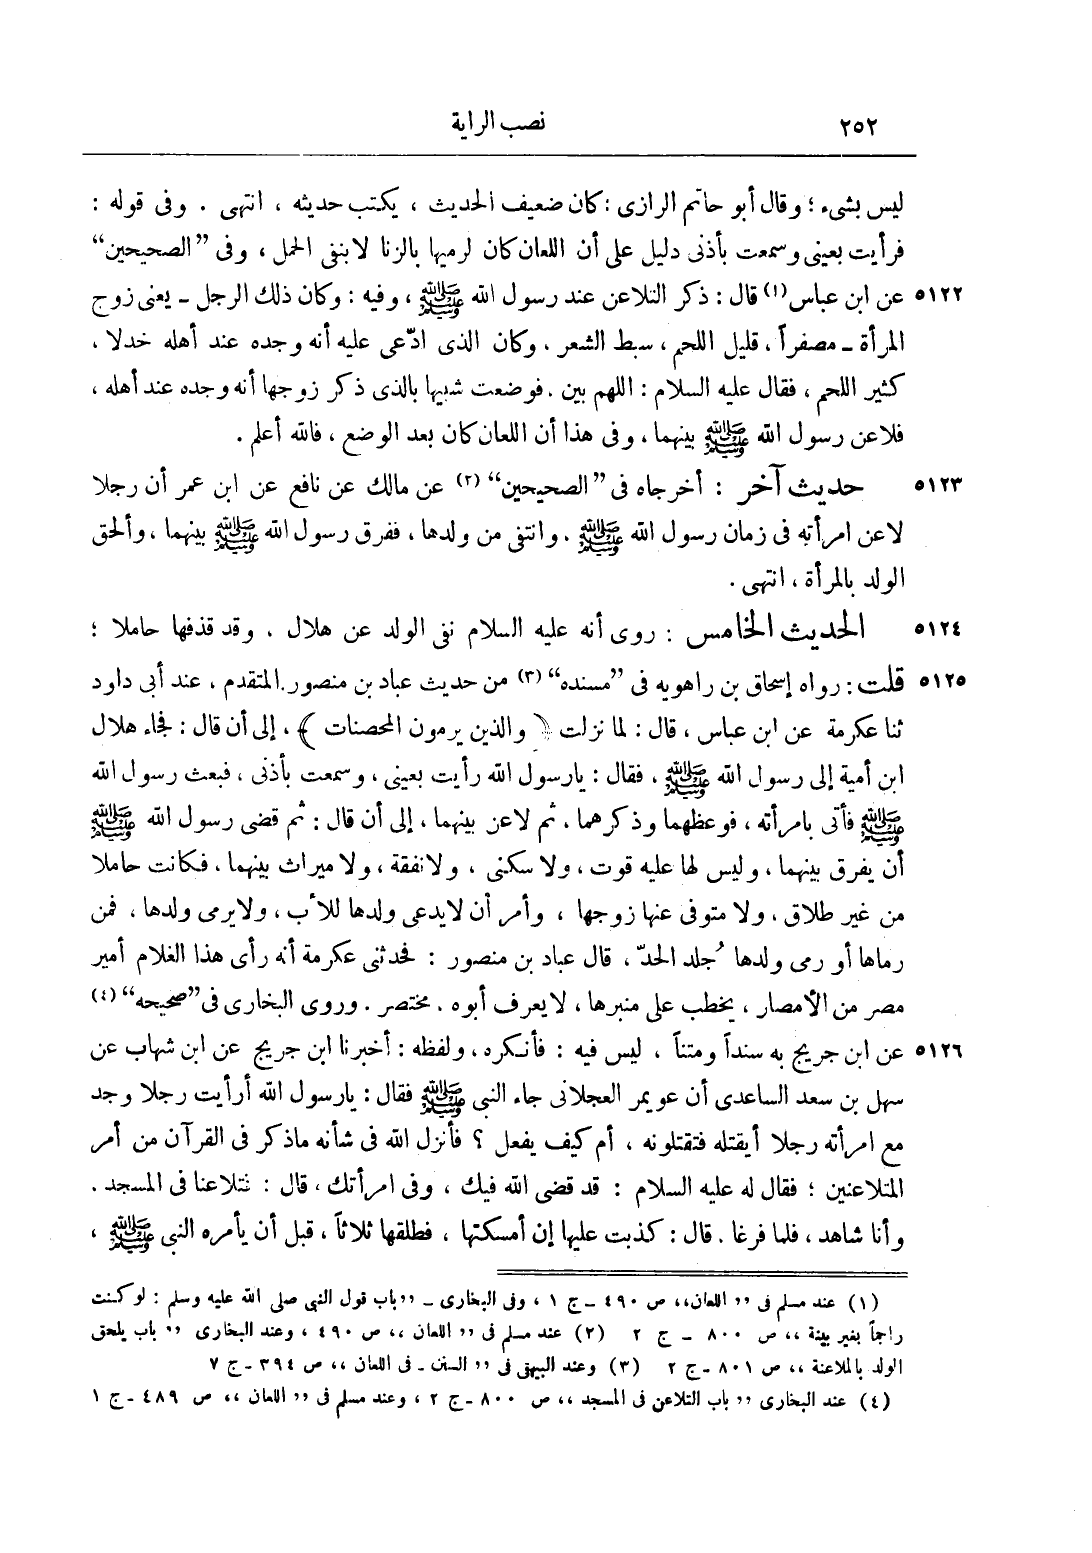 ٢٥٢ نصب الراية
ليس بشىء ؛ وقال أبو حاتم الرازى : كان ضعيف الحديث ، يكتب حديثه ، انتهى . وفى قوله :
فرأيت بعينى وسمعت بأذنى دليل على أن اللعان كان لرميها بالزنا لابنفى الحمل ، وفى "الصحيحين"
٥١٢٢ عن ابن عباس (١) قال : ذكر التلاعن عند رسول الله ﷺ ، وفيه : وكان ذلك الرجل ـ يعنى زوج
المرأة ـ مصفراً ، قليل اللحم ، سبط الشعر . وكان الذى ادّعى عليه أنه وجده عند أهله خدلا ،
كثير اللحم ، فقال عليه السلام : اللهم بين . فوضعت شبيها بالذى ذكر زوجها أنه وجده عند أهله ،
فلاعن رسول الله ﷺ بينهما ، وفى هذا أن اللعان كان بعد الوضع ، فالله أعلم .
٥١٢٣ حديث آخر : أخرجاه فى "الصحيحين" (٢) عن مالك عن نافع عن ابن عمر أن رجلا
لاعن امرأته فى زمان رسول الله ﷺ . وانتفى من ولدها ، ففرق رسول الله ﷺ بينهما ، وألحق
الولد بالمرأة ، انتهى .
٥١٢٤ الحديث الخامس : روى أنه عليه السلام نفى الولد عن هلال . وقد قذفها حاملا ؛
٥١٢٥ قلت : رواه إسحاق بن راهويه فى "مسنده" (٣) من حديث عباد بن منصور المتقدم ، عند أبى داود
ثنا عكرمة عن ابن عباس ، قال : لما نزلت ﴿ والذين يرمون المحصنات ﴾ ، إلى أن قال : فجاء هلال
ابن أمية إلى رسول الله ﷺ ، فقال : يارسول الله رأيت بعينى ، وسمعت بأذنى ، فبعث رسول الله
ﷺ فأتى بامرأته ، فوعظهما وذكرهما . ثم لاعن بينهما ، إلى أن قال : ثم قضى رسول الله ﷺ
أن يفرق بينهما ، وليس لها عليه قوت ، ولا سكنى ، ولانفقة ، ولا ميراث بينهما . فكانت حاملا
من غير طلاق . ولا متوفى عنها زوجها ، وأمر أن لايدعى ولدها للأب ، ولايرمى ولدها ، فمن
رماها أو رمى ولدها جُلد الحدّ ، قال عباد بن منصور : فحدثنى عكرمة أنه رأى هذا الغلام أمير
مصر من الأمصار ، يخطب على منبرها ، لا يعرف أبوه . مختصر . وروى البخارى فى "صحيحه" (٤)
٥١٢٦ عن ابن جريج به سنداً ومتناً ، ليس فيه : فأنكره ، ولفظه : أخبرنا ابن جريج عن ابن شهاب عن
سهل بن سعد الساعدى أن عويمر العجلانى جاء النبى ﷺ فقال : يارسول الله أرأيت رجلا وجد
مع امرأته رجلا أيقتله فتقتلونه ، أم كيف يفعل ؟ فأنزل الله فى شأنه ماذكر فى القرآن من أمر
المتلاعنين ؛ فقال له عليه السلام : قد قضى الله فيك ، وفى امرأتك ، قال : فتلاعنا فى المسجد .
وأنا شاهد ، فلما فرغا . قال : كذبت عليها إن أمسكتها ، فطلقها ثلاثاً ، قبل أن يأمره النبى ﷺ ،
(١) عند مسلم فى ,, اللعان،، ص ٤٩٠ ـ ج ١ ، وفى البخارى ـ ,, باب قول النبى صلى الله عليه وسلم : لو كنت
راجماً بغير بينة ،، ص ٨٠٠ ـ ج ٢ (٢) عند مسلم فى ,, اللعان ،، ص ٤٩٠ ، وعند البخارى ,, باب يلحق
الولد بالملاعنة ،، ص ٨٠١ ـ ج ٢ (٣) وعند البيهقى فى ,, السنن ـ فى اللعان ،، ص ٣٩٤ ـ ج ٧
(٤) عند البخارى ,, باب التلاعن فى المسجد ،، ص ٨٠٠ ـ ج ٢ ، وعند مسلم فى ,, اللعان ،، ص ٤٨٩ ـ ج ١